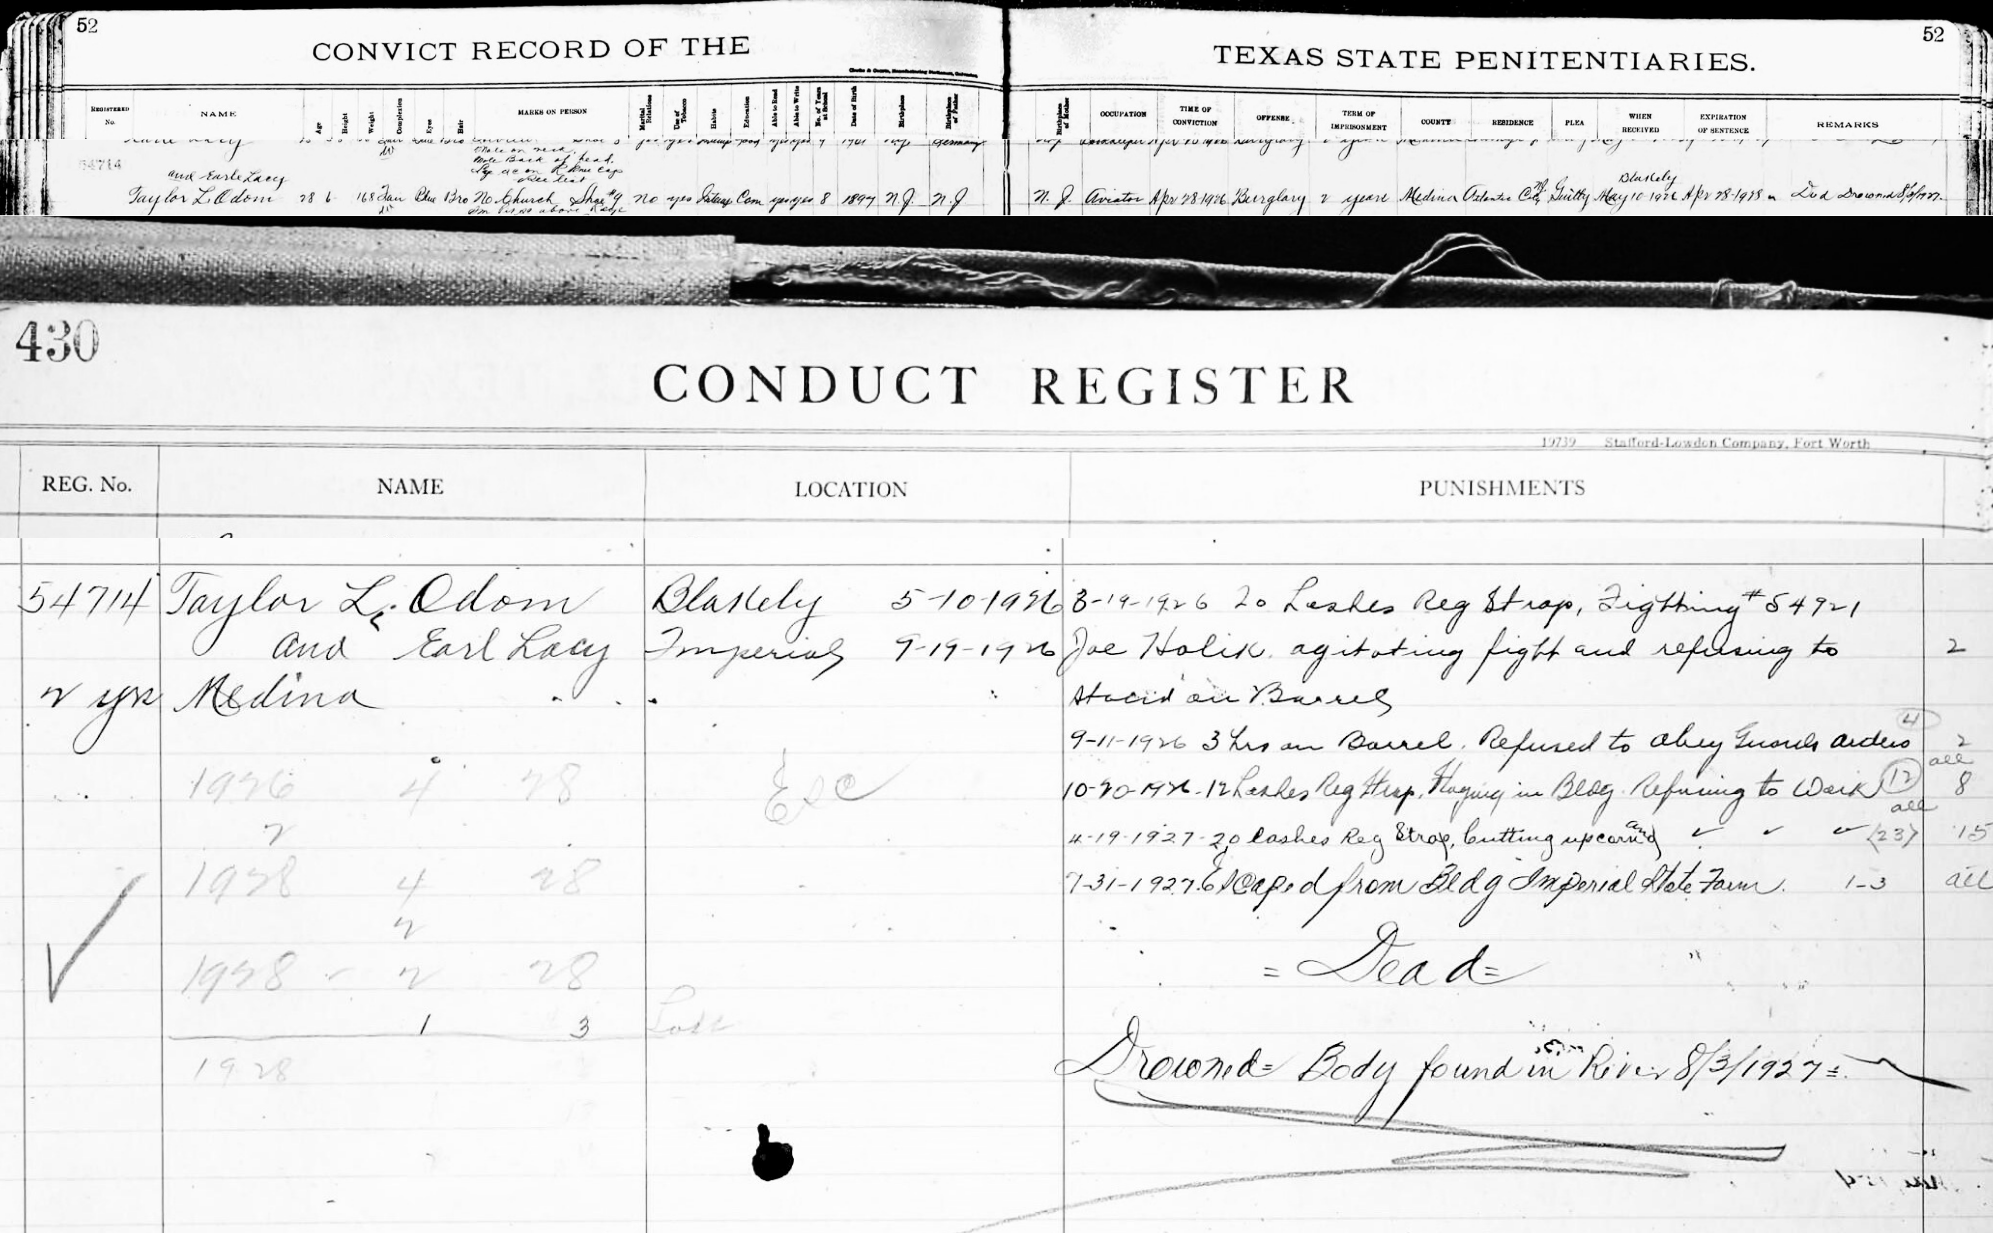 52
52
CONVICT RECORD OF THE
TEXAS STATE PENITENTIARIES.
REGISTERED No.
NAME
Age
Height
Weight
Complexion
Eyes
Hair
MARKS ON PERSON
Marital Relations
Use of Tobacco
Habits
Education
Able to Read
Able to Write
No. of Years at School
Date of Birth
Birthplace
Birthplace of Father
Birthplace of Mother
OCCUPATION
TIME OF CONVICTION
OFFENSE
TERM OF IMPRISONMENT
COUNTY
RESIDENCE
PLEA
WHEN RECEIVED
EXPIRATION OF SENTENCE
REMARKS
Mole on neck
Mole Back of head
54714
and Earle Lacy
Blakely
Taylor L. Odom 28 6 168 Blue Bro No Church Shoe #9 no yes Com yes yes 8 1897 N.J. N.J
N.J. Aviator Apr 28 1926 Burglary 2 years Medina Atlantic City NJ Guilty May 10 1926 Apr 28-1928 Drowned
430
CONDUCT REGISTER
19739 Stafford-Lowdon Company, Fort Worth
REG. No.
NAME
LOCATION
PUNISHMENTS
54714 Taylor L. Odom Blakely 5-10-1926 8-19-1926 20 Lashes Reg Strap, Fighting #54921
and Earl Lacy Imperial 9-19-1926 Joe Holik. agitating fight and refusing to 2
2 yrs Medina stand on Barrel
4
9-11-1926 3 hrs on Barrel. Refused to obey Guards orders 2
all
1926 4 28 Esc 10-20-1926-12 Lashes Reg Strap. Staying in Bldg. Refusing to Work 12 8
all
2 4-19-1927-20 lashes Reg Strap, Cutting up corn and ✓ ✓ ✓ (23) 15
1928 4 28 7-31-1927. Escaped from Bldg Imperial State Farm. 1-3 all
2
= Dead =
1928 - 2 28
1 3 Lost
1928
Drowned = Body found in River 8/3/1927 =